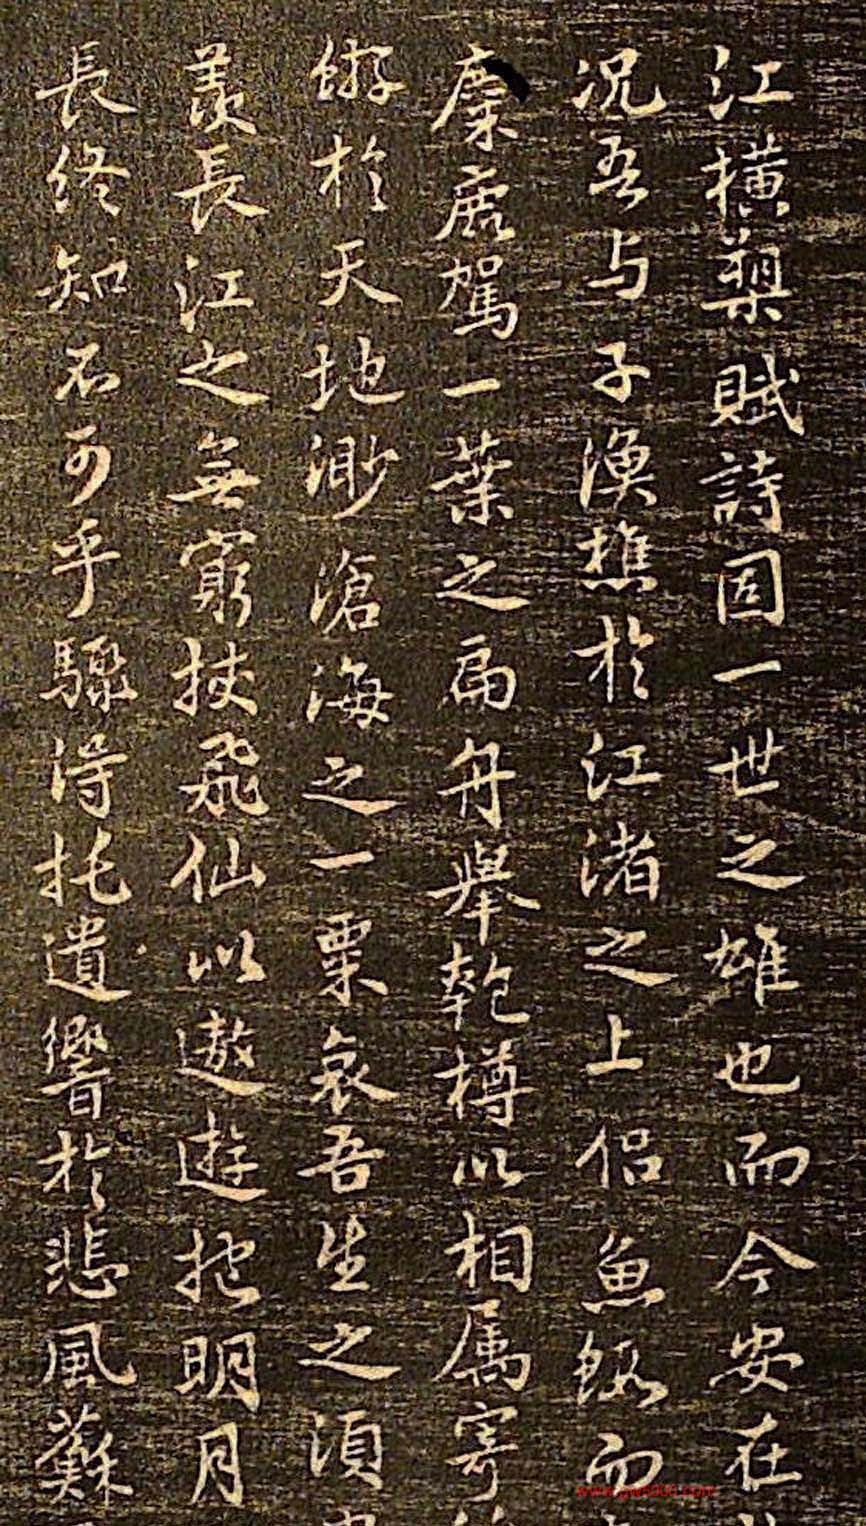 江橫槊賦詩固一世之雄也而今安在
况吾与子漁樵於江渚之上侣魚鰕而
麋鹿駕一葉之扁舟舉匏樽以相属寄
蝣於天地渺滄海之一粟哀吾生之須
羨長江之無窮挟飛仙以遨遊抱明月
長終知不可乎驟得托遺響於悲風蘇